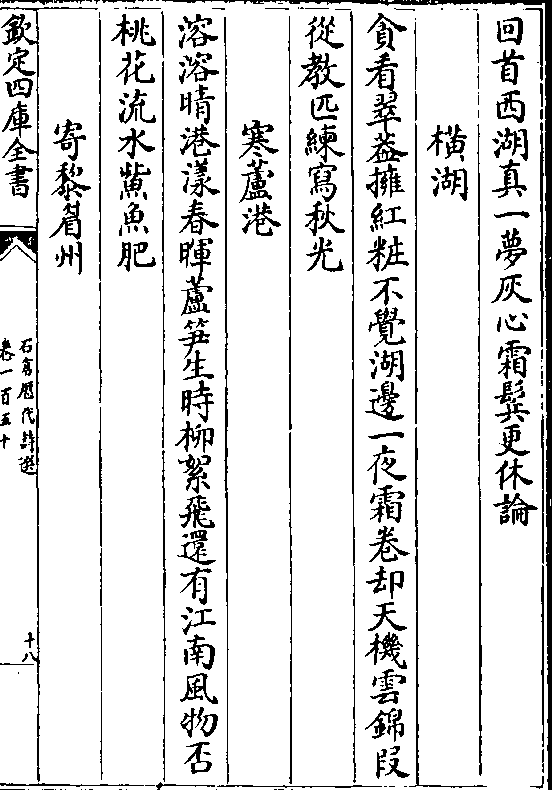 回首西湖真一夢灰心霜鬢更休論
橫湖
貪看翠葢擁紅粧不覺湖邊一夜霜卷却天機雲錦段
從教匹練寫秋光
寒蘆港
溶溶晴港漾春暉蘆笋生時柳絮飛還有江南風物否
桃花流水鮆魚肥
寄黎眉州
欽定四庫全書
石倉歷代詩選
卷一百五十
十八